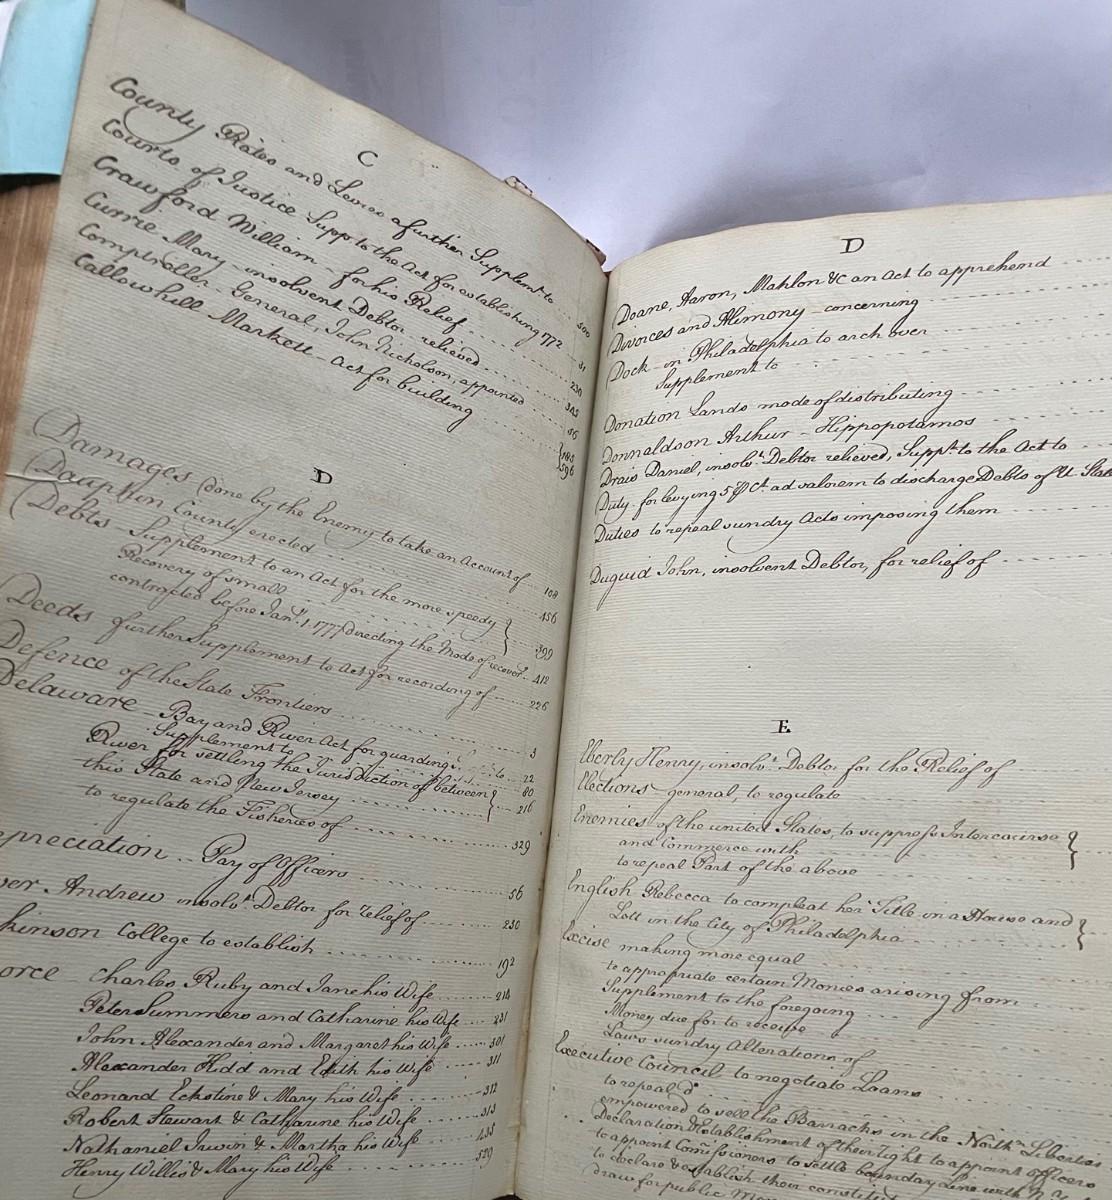 C
County Rates and Levies a further Supplemt to 500
Courts of Justice Suppt to the Act for establishing 1772 31
Crawford William - for his Relief 230
Currie Mary - insolvent Debtor relieved 303
Comptroller-General, John Nicholson, appointed 56
Callowhill Markett - Act for building 596
D
Damages (done by the Enemy to take an Account of 108
Dauphin County erected 456
Debts - Supplement to an Act for the more speedy
Recovery of small } 399
contracted before Jany. 1. 1777 directing the Mode of recovery 412
Deeds further Supplement to Act for recording of 226
Defence of the State Frontiers 3
Delaware - Bay and River Act for guarding 22
Supplement to 80
River for settling the Jurisdiction of between
this State and New Jersey } 216
to regulate the Fisheries of 329
preciation - Pay of Officers 56
ver Andrew insolvt. Debtor for relief of 230
kinson College to establish 192
orce - Charles Ruby and Jane his Wife 214
Peter Summers and Catharine his Wife 231
John Alexander and Margaret his Wife 301
Alexander Kidd and Edith his Wife 311
Leonard Eckstine & Mary his Wife 312
Robert Stewart & Catharine his Wife 313
Nathaniel Irwin & Martha his Wife 435
Henry Willis & Mary his Wife 529
D
Doane, Aaron, Mahlon &c an Act to apprehend
Divorces and Alimony concerning
Dock - in Philadelphia to arch over
Supplement to
Donation Lands mode of distributing
Donnaldson Arthur - Hippopotamos
Drais Daniel, insolvt. Debtor relieved, Suppt. to the Act to
Duty for levying 5 ⅌ Ct. ad valorem to discharge Debts of U. Stat
Duties to repeal sundry Acts imposing them
Duguid John, insolvent Debtor, for relief of
E
Eberly Henry, insolvt. Debtor for the Relief of
Elections - general, to regulate
Enemies of the united States, to suppress Intercourse
and Commerce with
to repeal Part of the above
English Rebecca to compleat her Title in a House and
Lott in the City of Philadelphia
Excise making more equal
to appropriate certain Monies arising from
Supplement to the foregoing
Money due for to receive
Laws sundry Alterations of
Executive Council to negotiate Loans
to repeal Do
empowered to sell the Barracks in the Northn Liberties
Declaration & Establishment of their right to appoint officers
to appoint Comissioners to settle boundary Line with
to declare & establish their
draw for public